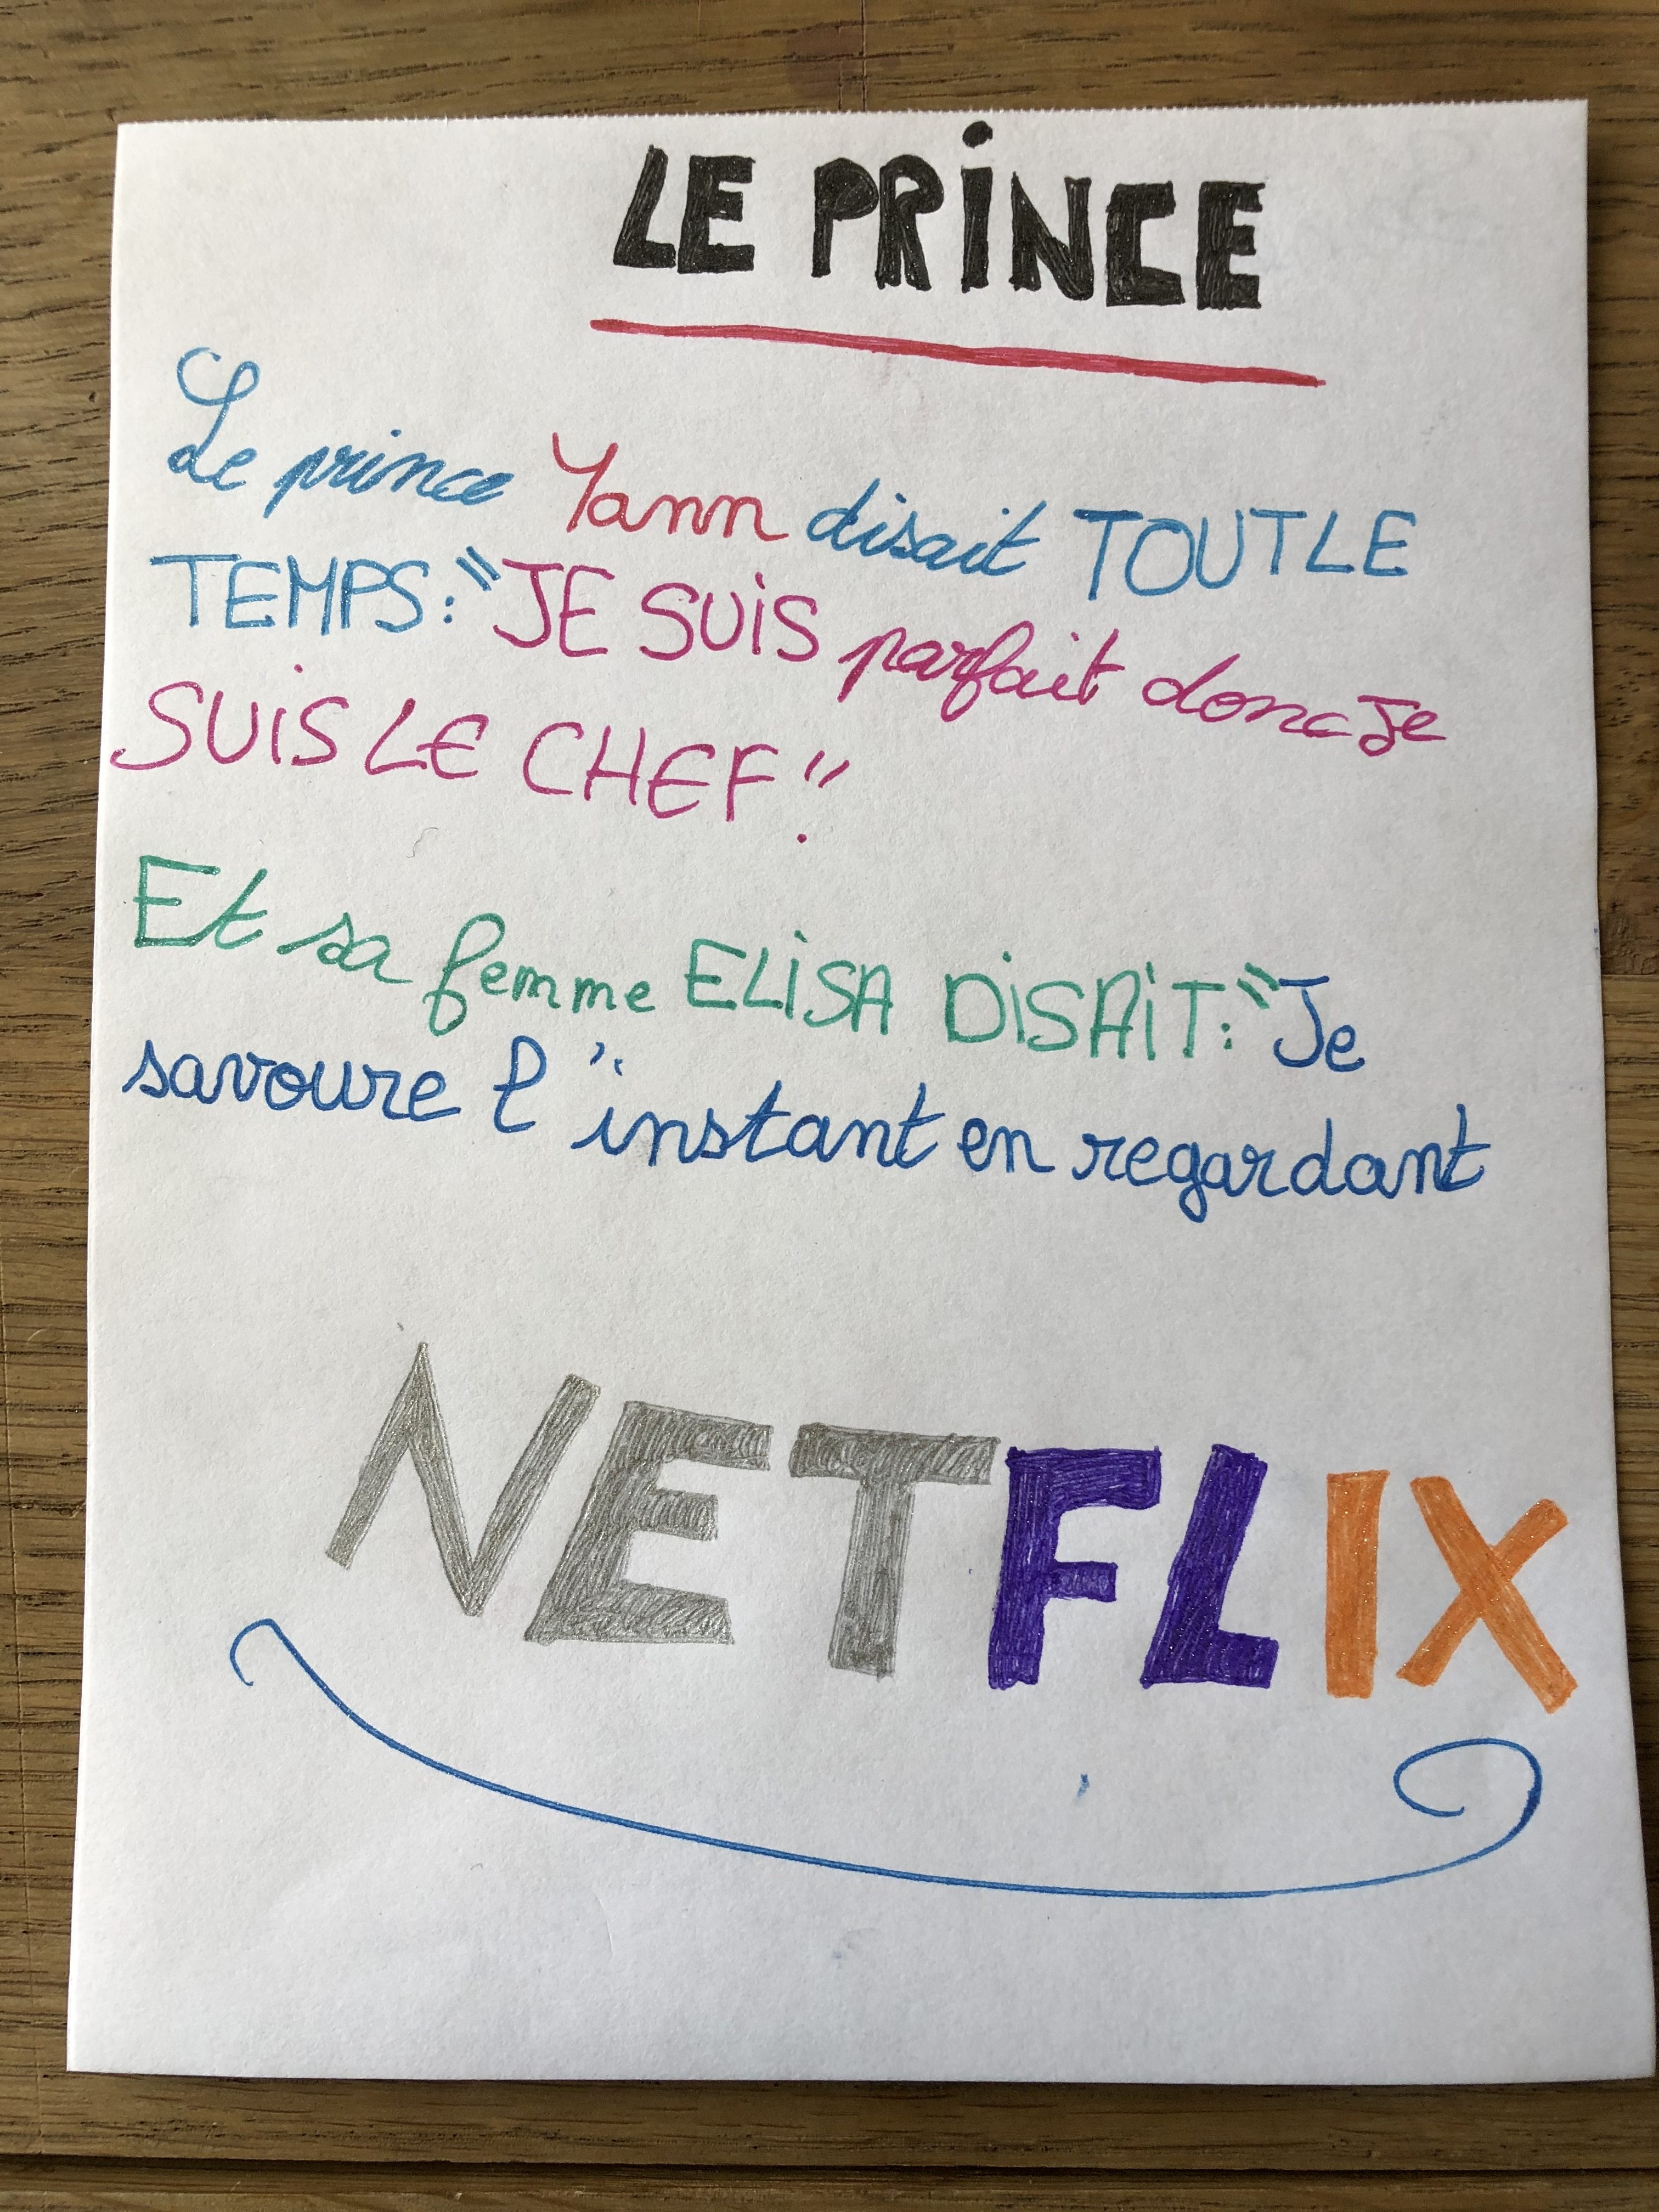 LE PRINCE
Le prince Yann disait TOUT LE
TEMPS: "JE SUIS parfait donc je
SUIS LE CHEF."
Et sa femme ELISA DISAIT: "Je
savoure l'instant en regardant
NETFLIX